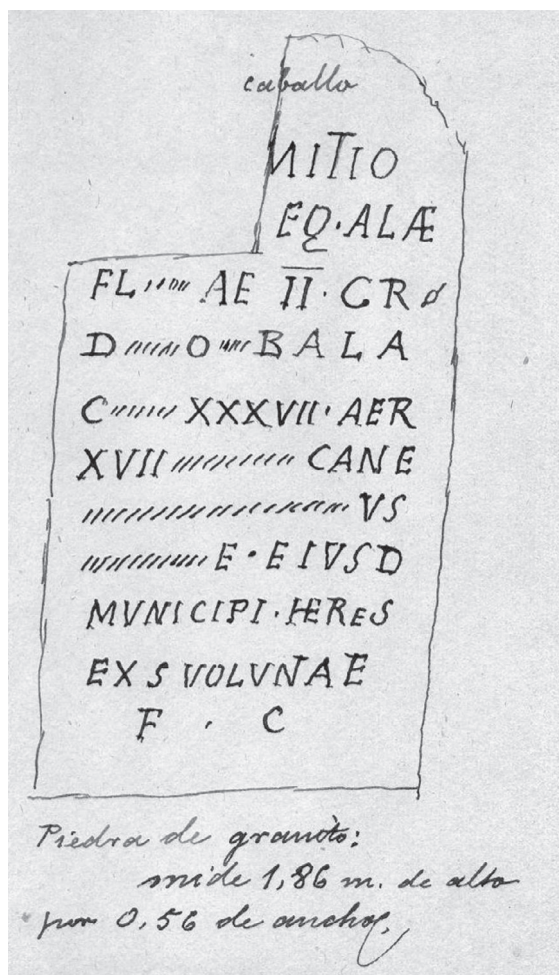 caballo
NITIO
EQ·ALÆ
FL AE II·CR
D O BALA
C XXXVII·AER
XVII CANE
VS
E·EIVSD
MVNICIPI·HEReS
EX S VOLVNAE
F · C
Piedra de granito:
mide 1,86 m. de alto
por 0,56 de ancho.